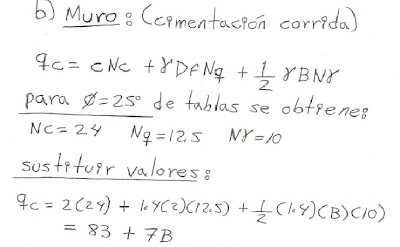 b) Muro: (cimentación corrida)
qc = cNc + γDfNq + 1/2 γBNγ
para Ø=25° de tablas se obtiene:
Nc=24 Nq=12.5 Nγ=10
sustituir valores:
qc = 2(24) + 1.4(2)(12.5) + 1/2 (1.4)(B)(10)
= 83 + 7B